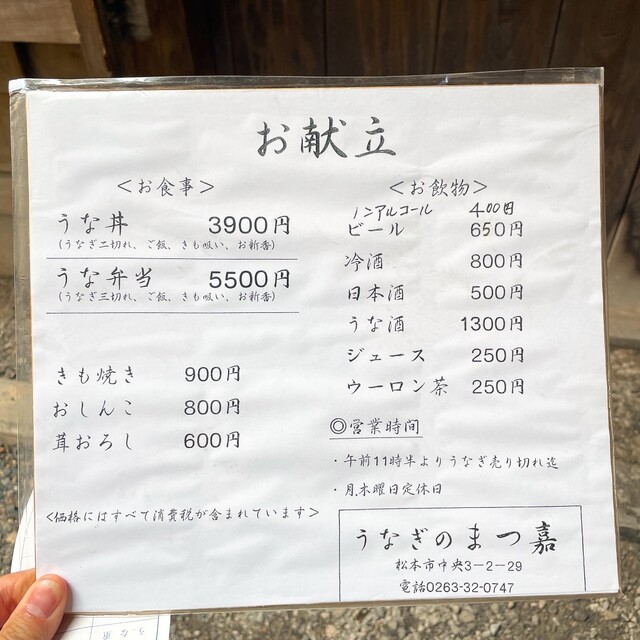 お献立
<お食事>
うな丼 3900円
(うなぎ二切れ、ご飯、きも吸い、お新香)
うな弁当 5500円
(うなぎ三切れ、ご飯、きも吸い、お新香)
きも焼き 900円
おしんこ 800円
茸おろし 600円
<価格にはすべて消費税が含まれています>
<お飲物>
ノンアルコール 400円
ビール 650円
冷酒 800円
日本酒 500円
うな酒 1300円
ジュース 250円
ウーロン茶 250円
◎営業時間
・午前11時半よりうなぎ売り切れ迄
・月木曜日定休日
うなぎのまつ嘉
松本市中央3-2-29
電話0263-32-0747